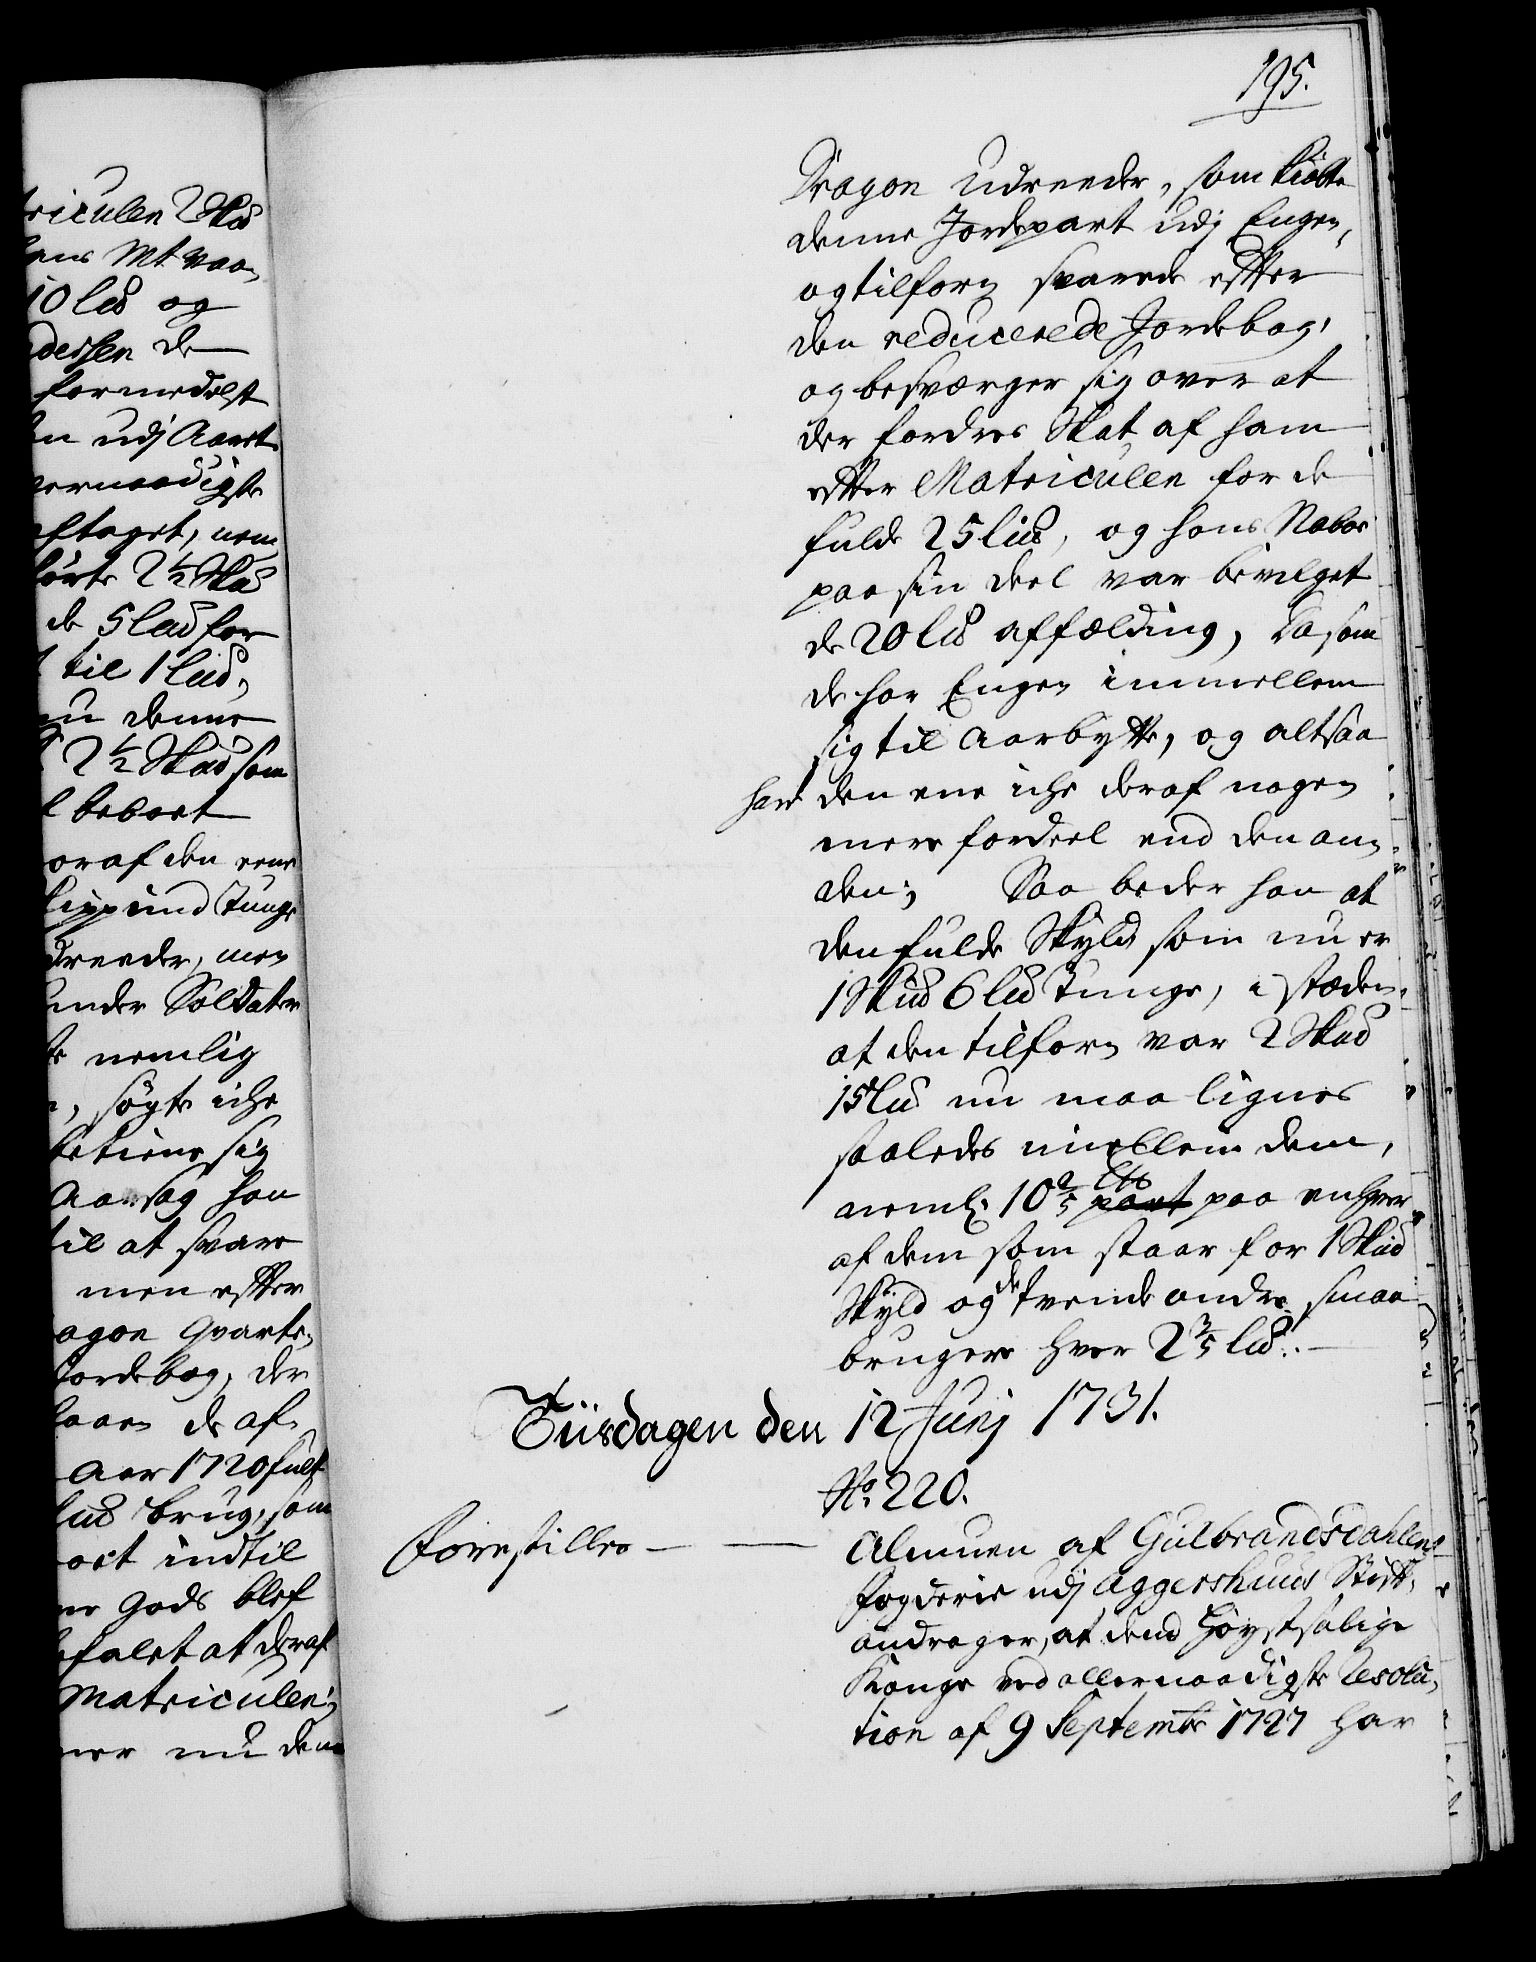 195.
Dragon udreeder, som kiøbte
denne Jordepart udj Engen,
og tilforn svarede efter
den reducerede Jordebog,
og besværger sig over at
der fordres Skat af ham
efter Matriculen for de
fulde 25 lud, og hans Naboe
paa sin deel var bevilget
de 20 lud affælding, da som
de har Engen immellem
sig til Aarbytte, og altsaa
har den ene iche deraf nogen
meere fordeel end den an¬
den; Saa beder han at
den fulde Skyld som nu er
1 Skud 6 lud Tunge, i stæden
at den tilforn var 2 Skud
15 lud nu maa lignes
saaledes imellem dem,
neml. 10 2/5 part lts paa enhver
af dem som staar for 1 Skud
Skyld og de tvende andre smaa
brugere hver 2 3/5 lud.
Tiisdagen den 12 Junj 1731.
No. 220.
Forestilles
Almuen af Gulbrandsdahlens
Fogderie udj Aggershuus Stift,
andrager, at dend Høystsalige
Konge ved allernaadigste Resolu¬
tion af 9 Septembr 1727 har
triculen 2 Skud
10 lud og
dessen de
formedelst
en udj Aaret
ernaadigste
aftaget, nem
førte 2 1/2 Skud
de 5 lud for
til 1 lud,
nu denne
2 1/2 Skud som
beboet
oraf den eene
Lispund Tunge
dreeder, men
under Soldater
nemlig
, søgte iche
betiene sig
Aarsag han
til at svare
men efter
agon Qvarte¬
Jordebog, der
de af¬
Aar 1720 fult
lud brug, som
oet indtil
Gods blef
efalet at deraf
Matriculen;
er nu den